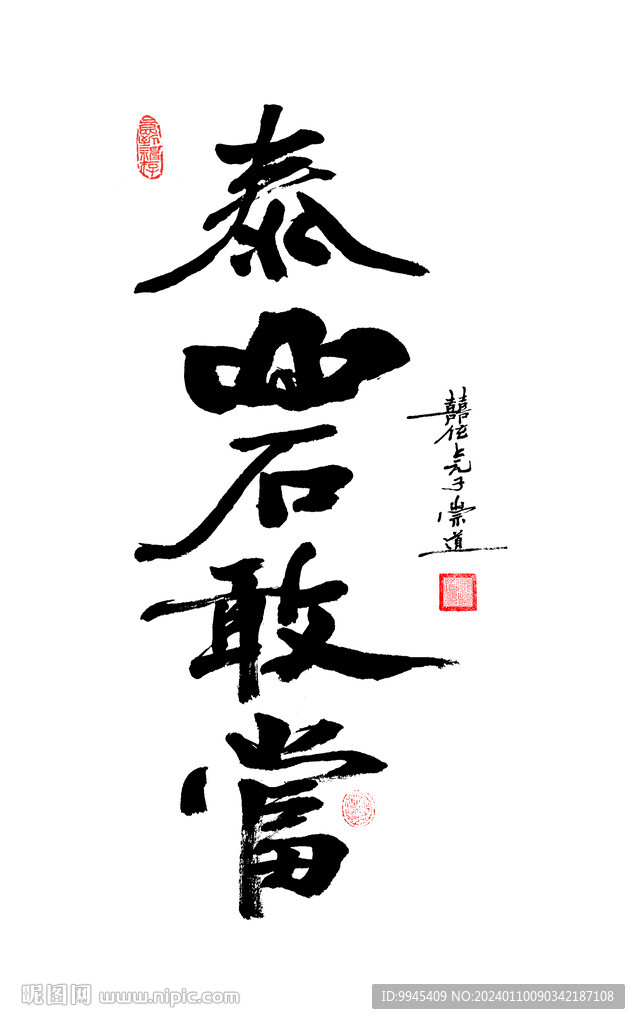 泰山石敢當
子崇道
昵图网 www.nipic.com
ID:9945409 NO:20240110090342187108